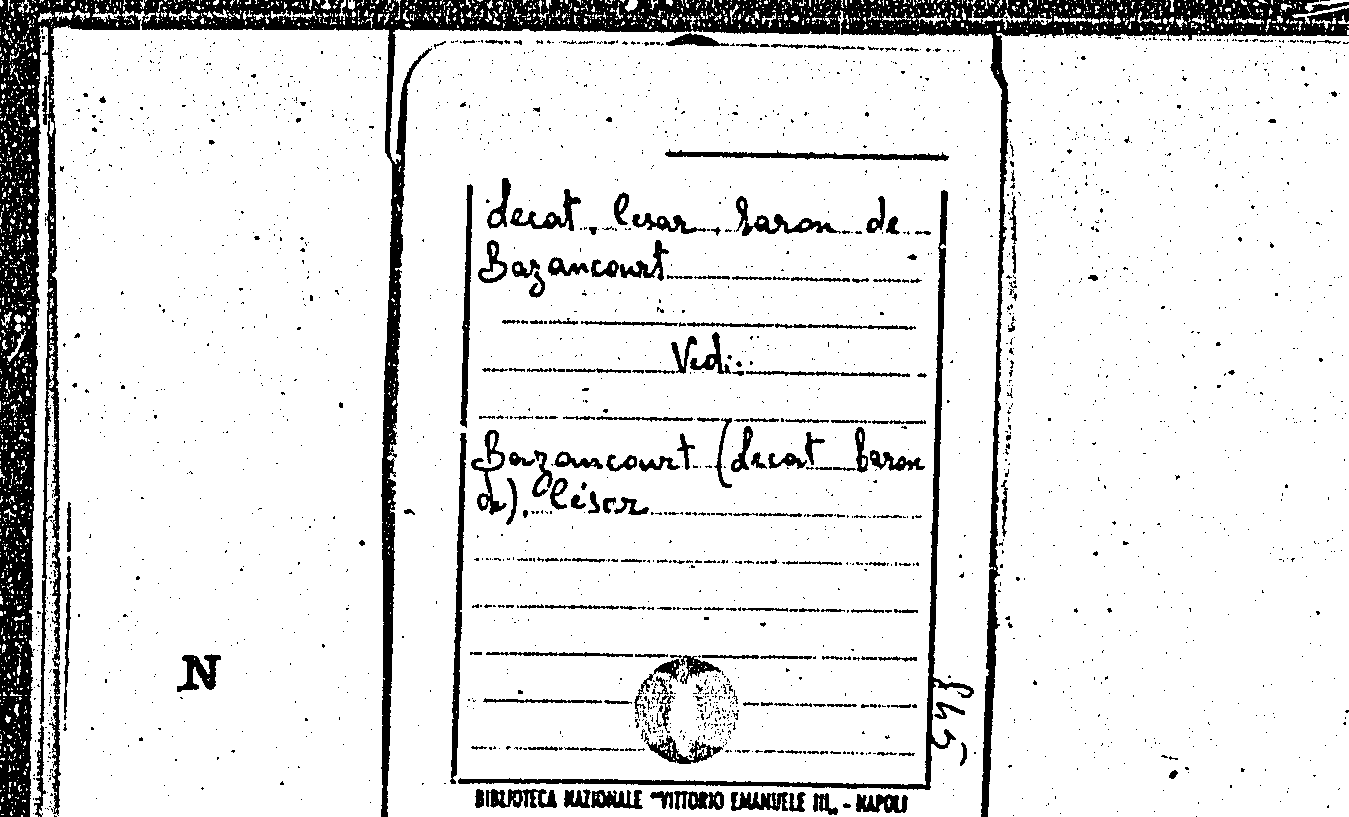 Lecat, César, baron de
Bazancourt
Vedi:
Bazancourt (Lecat baron
de), César
N
BIBLIOTECA NAZIONALE "VITTORIO EMANUELE III„ - NAPOLI